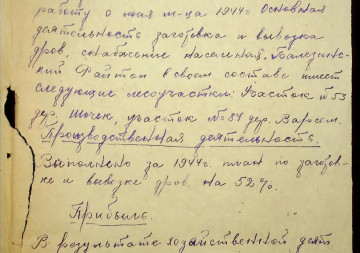 работу с мая м-ца 1944г. Основная
деятельность заготовка и вывозка
дров, снабжение населения. Балезин-
ский Райтоп в своем составе имеет
следующие лесоучастки: Участок №53
дер. Шочек, участок №84 дер. Ворсем.
Производственная деятельность.
Выполнено за 1944г. план по заготов-
ке и вывозке дров на 52%.
Прибыль.
В результате хозяйственной деят